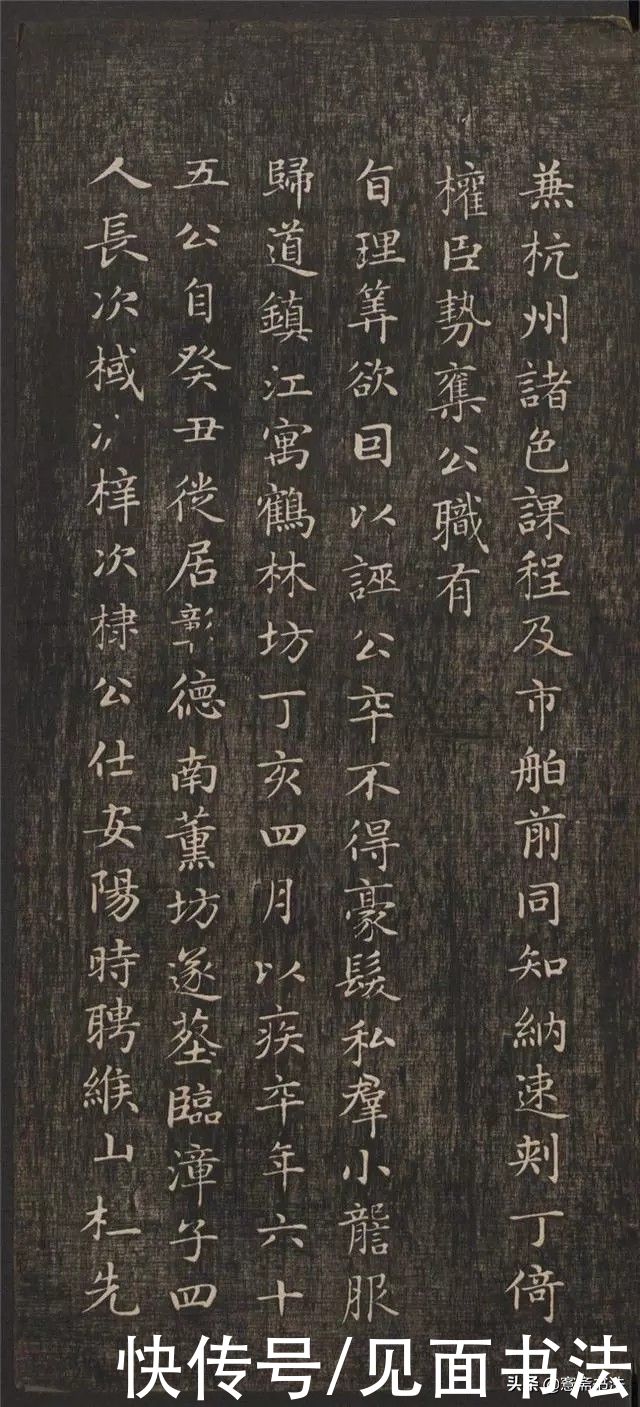 兼杭州諸色課程及市舶前同知納速剌丁倚
權臣勢奪公職有
旨理筭欲因以誣公卒不得豪髮私羣小讋服
歸道鎮江寓鶴林坊丁亥四月以疾卒年六十
五公自癸丑徙居彰德南薰坊遂塟臨漳子四
人長次棫次梓次棣公仕安陽時聘緱山杜先
快传号/见面书法
头条@愙斋书法